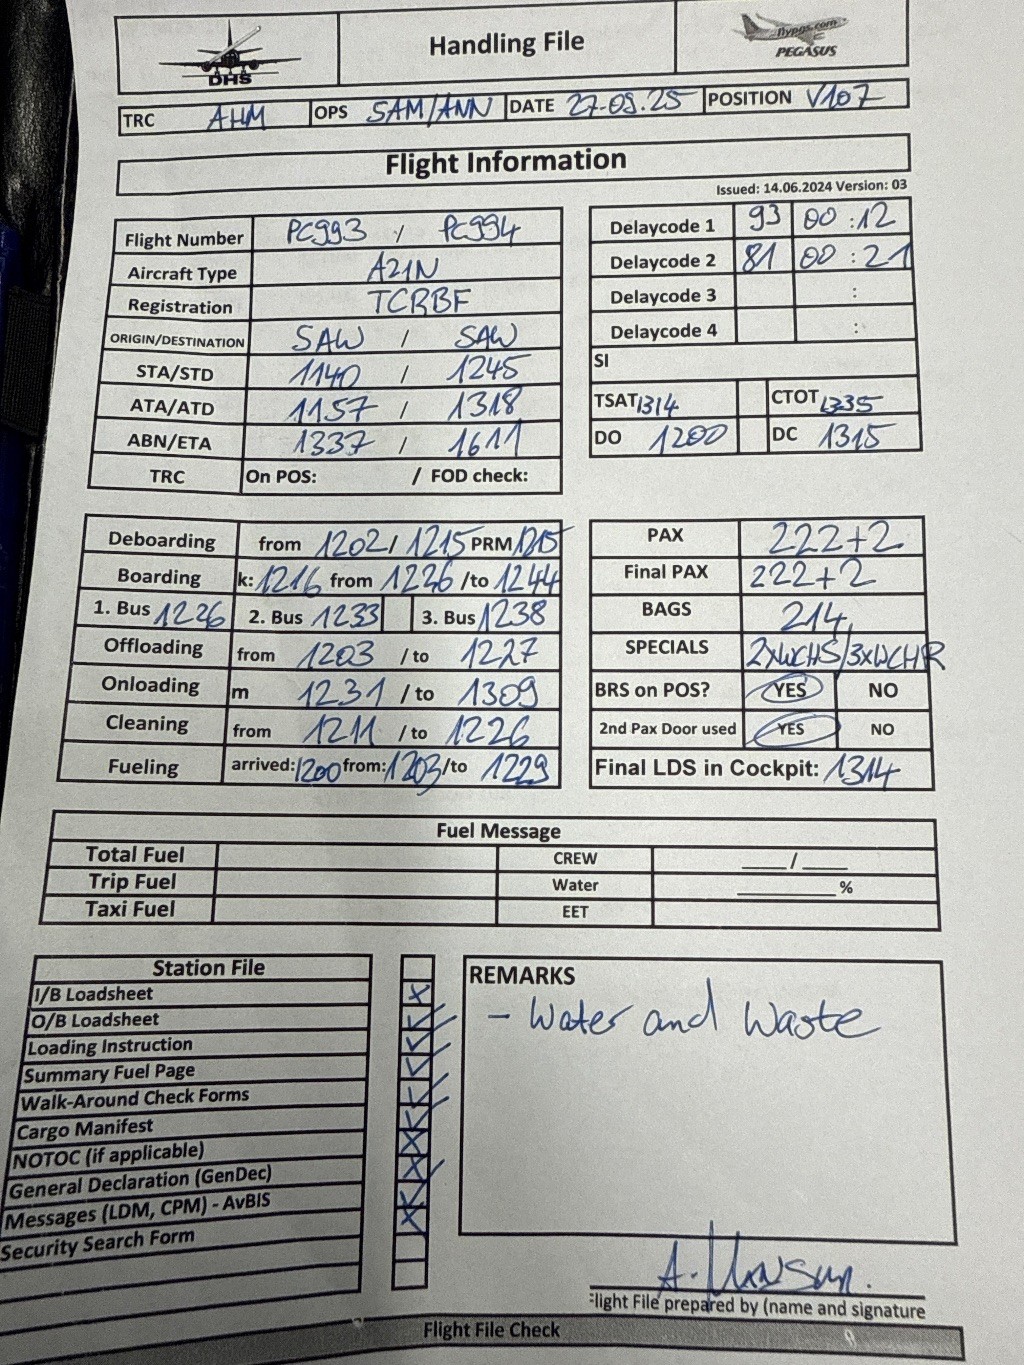 DHS
Handling File
flypgs.com
PEGASUS
TRC AHM OPS SAM/ANN DATE 27.09.25 POSITION V107
Flight Information
Issued: 14.06.2024 Version: 03
Flight Number PC993 / PC994
Aircraft Type A21N
Registration TCRBF
ORIGIN/DESTINATION SAW / SAW
STA/STD 1140 / 1245
ATA/ATD 1157 / 1318
ABN/ETA 1337 / 1611
TRC On POS: / FOD check:
Delaycode 1 93 00:12
Delaycode 2 81 00:21
Delaycode 3 :
Delaycode 4 :
SI
TSAT 1314 CTOT 1335
DO 1200 DC 1315
Deboarding from 1202 / 1215 PRM 1215
Boarding k: 1216 from 1226 /to 1244
1. Bus 1226 2. Bus 1233 3. Bus 1238
Offloading from 1203 / to 1227
Onloading m 1231 / to 1309
Cleaning from 1211 / to 1226
Fueling arrived: 1200 from: 1203 /to 1229
PAX 222+2
Final PAX 222+2
BAGS 214
SPECIALS 2xWCHS/3xWCHR
BRS on POS? YES NO
2nd Pax Door used YES NO
Final LDS in Cockpit: 1314
Fuel Message
Total Fuel CREW ____/____
Trip Fuel Water ________%
Taxi Fuel EET
Station File
I/B Loadsheet
O/B Loadsheet
Loading Instruction
Summary Fuel Page
Walk-Around Check Forms
Cargo Manifest
NOTOC (if applicable)
General Declaration (GenDec)
Messages (LDM, CPM) - AvBIS
Security Search Form
REMARKS
- Water and Waste
Flight File prepared by (name and signature
Flight File Check